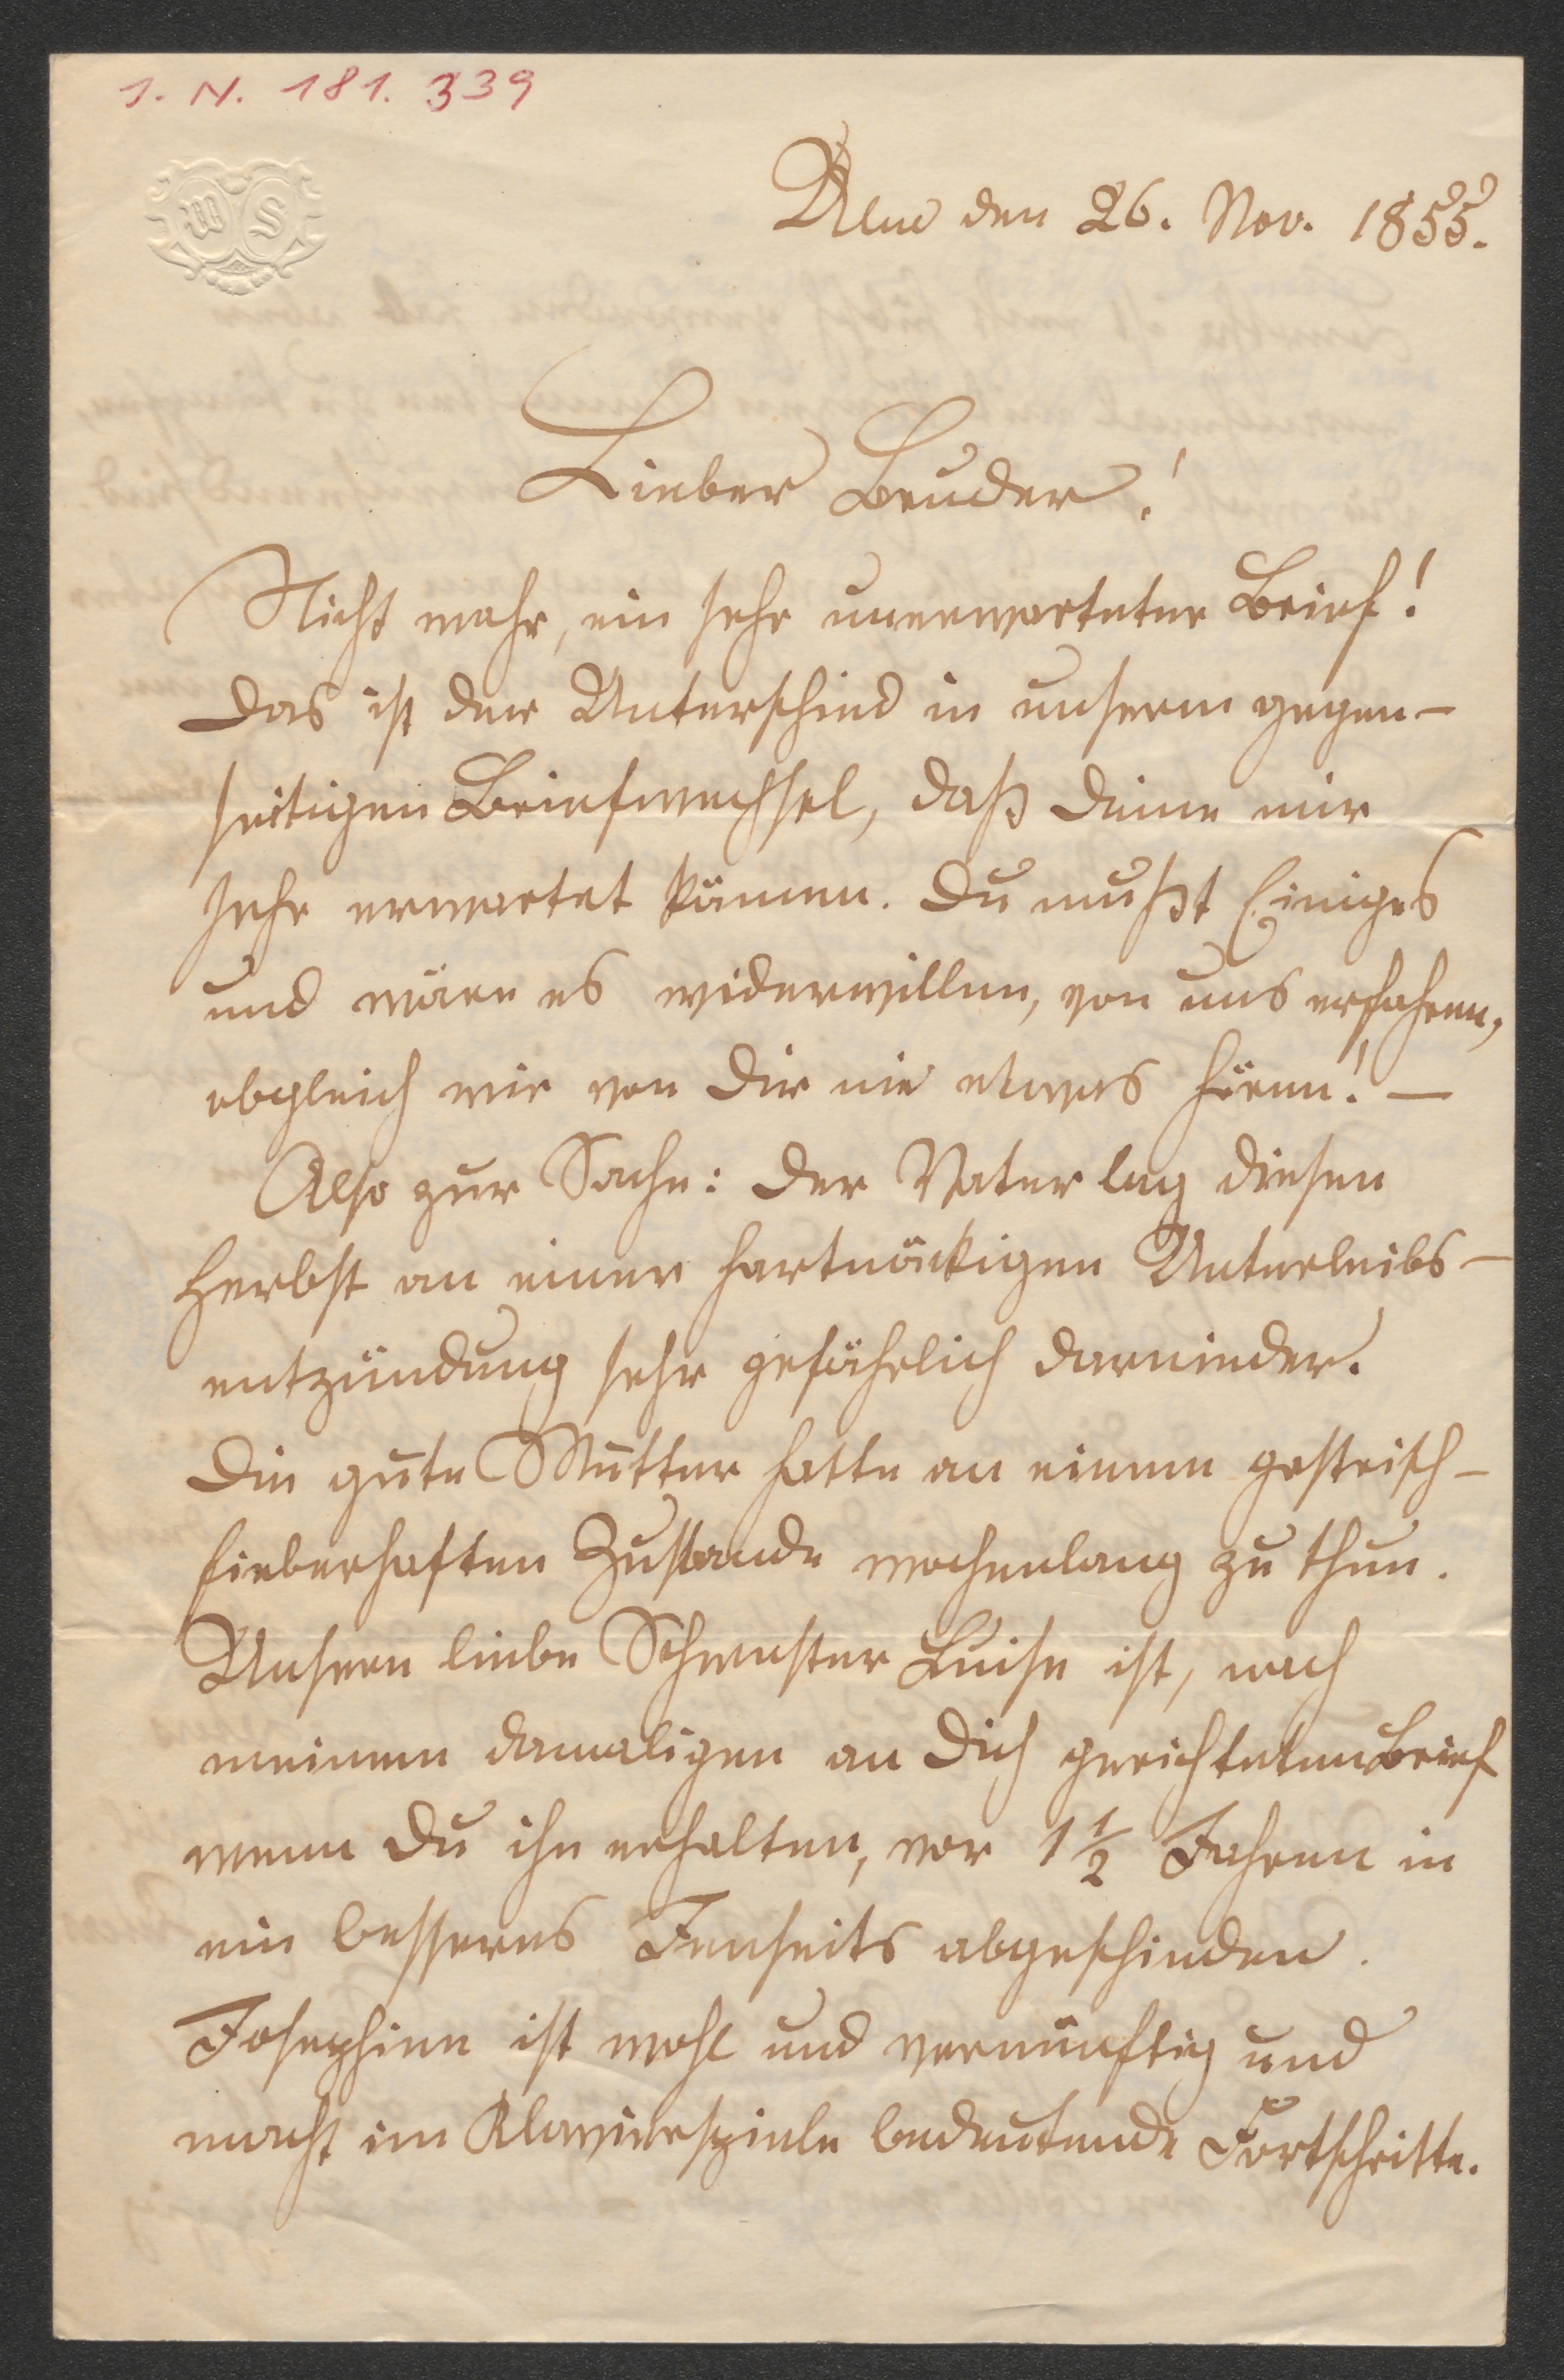 I. N. 181.339
W S
Ulm den 26. Nov. 1855.
Lieber Bruder!
Nicht wahr, ein sehr unerwarteter Brief!
Das ist der Unterschied in unserm gegen-
seitigen Briefwechsel, daß Deine mir
sehr erwartet kämen. Du mußt Einiges
und wäre es widerwillen, von uns erfahren,
obgleich wir von Dir nie etwas hören! —
Also zur Sache: Der Vater lag diesen
Herbst an einer hartnäckigen Unterleibs-
entzündung sehr gefährlich darnieder.
Die gute Mutter hatte an einem gastrisch-
fieberhaften Zustande wochenlang zu thun.
Unsere liebe Schwester Luise ist, nach
meinem damaligen an Dich gerichteten Brief
wenn Du ihn erhalten, vor 1 1/2 Jahren in
ein besseres Jenseits abgeschieden.
Josephine ist wohl und vernünftig und
macht im Klavierspiele bedeutende Fortschritte.